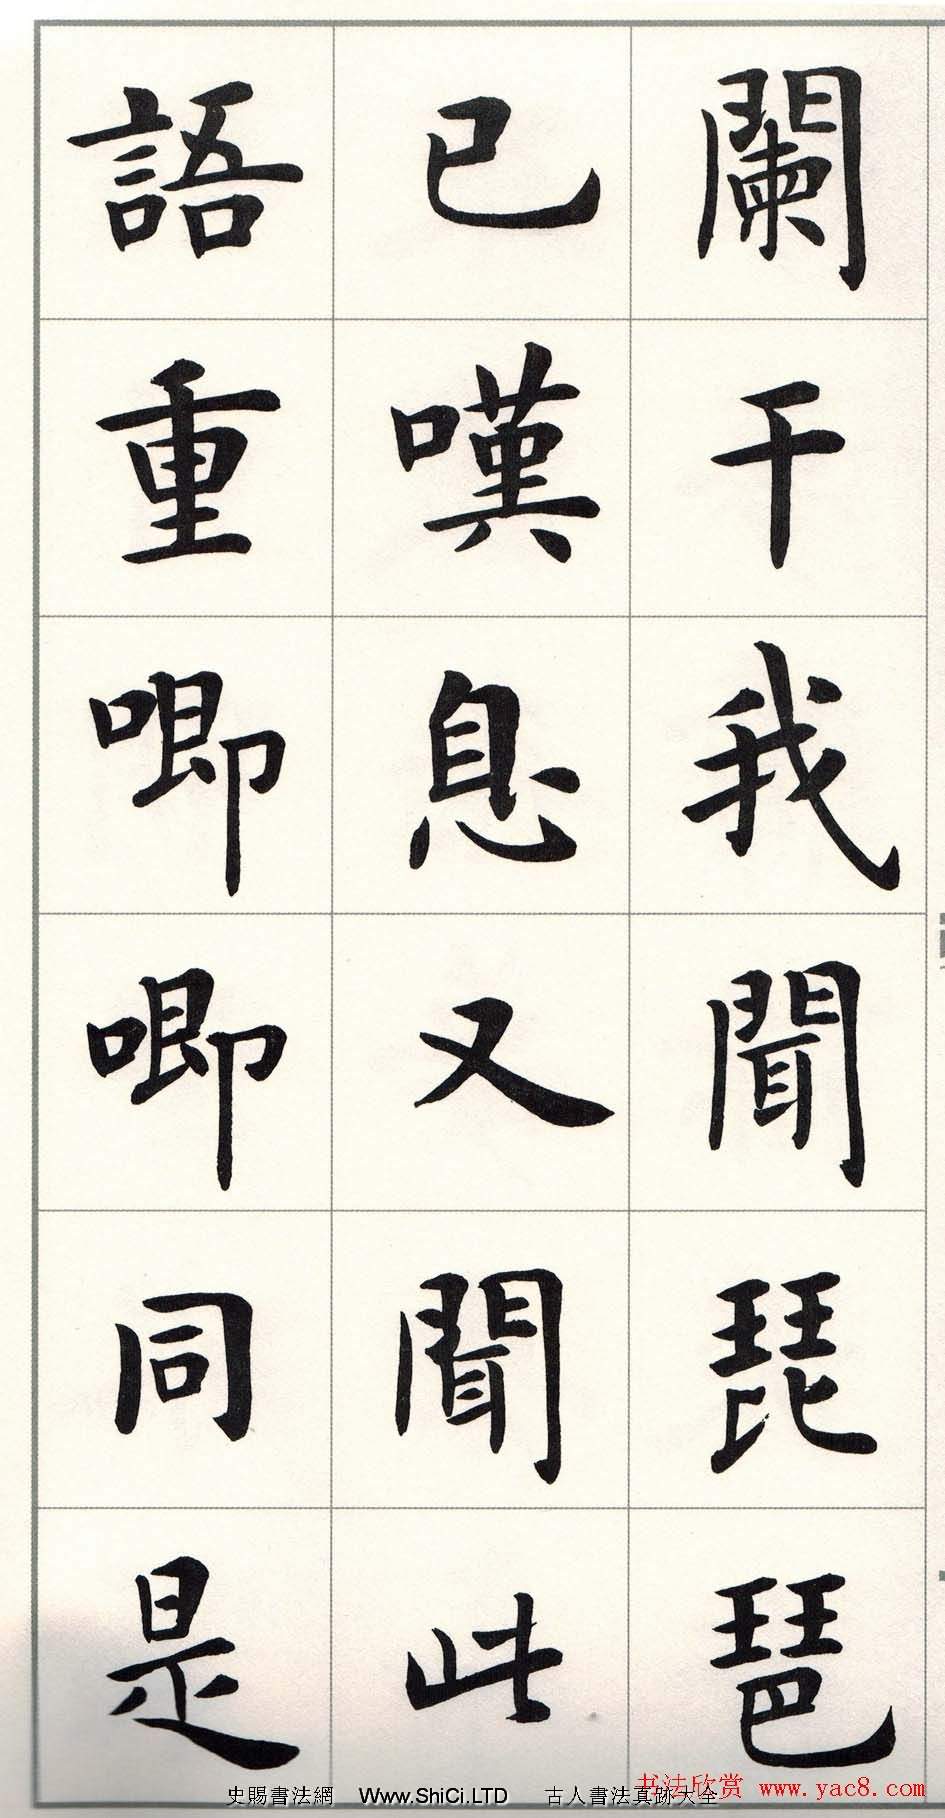 闌干我聞琵琶
已嘆息又聞此
語重唧唧同是
书法欣赏 www.yac8.com
史賜書法網 Www.ShiCi.LTD 古人書法真跡大全